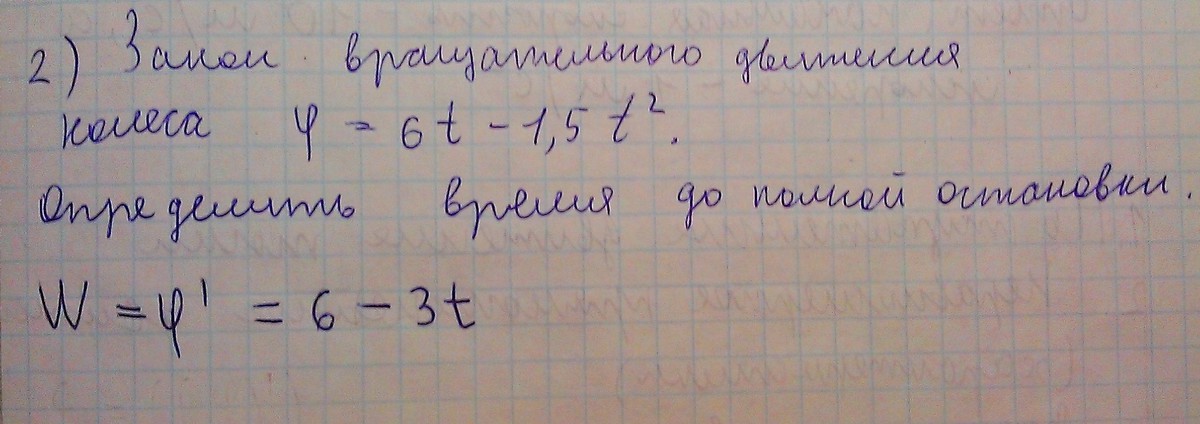 2) Закон вращательного движения
колеса φ = 6t - 1,5t².
Определить время до полной остановки.
W = φ' = 6 - 3t